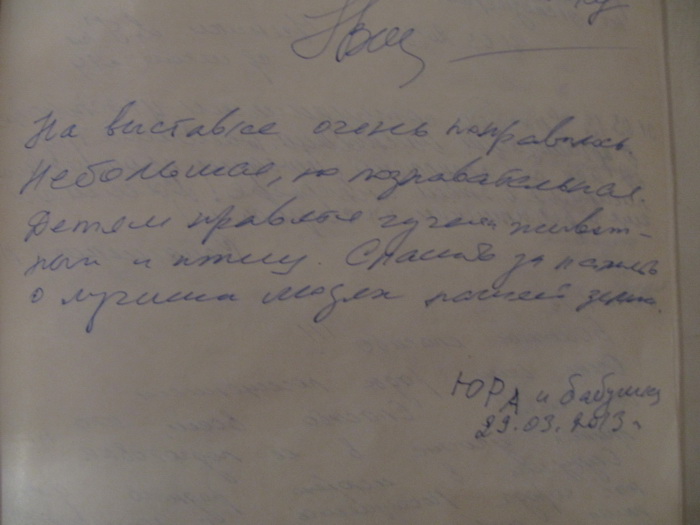 На выставке очень понравилось.
Небольшая, но познавательная.
Детям нравятся чучела живот-
ных и птиц. Спасибо за память
о лучших людях нашей земли.
ЮРА и бабушка
29.03.2013 г.